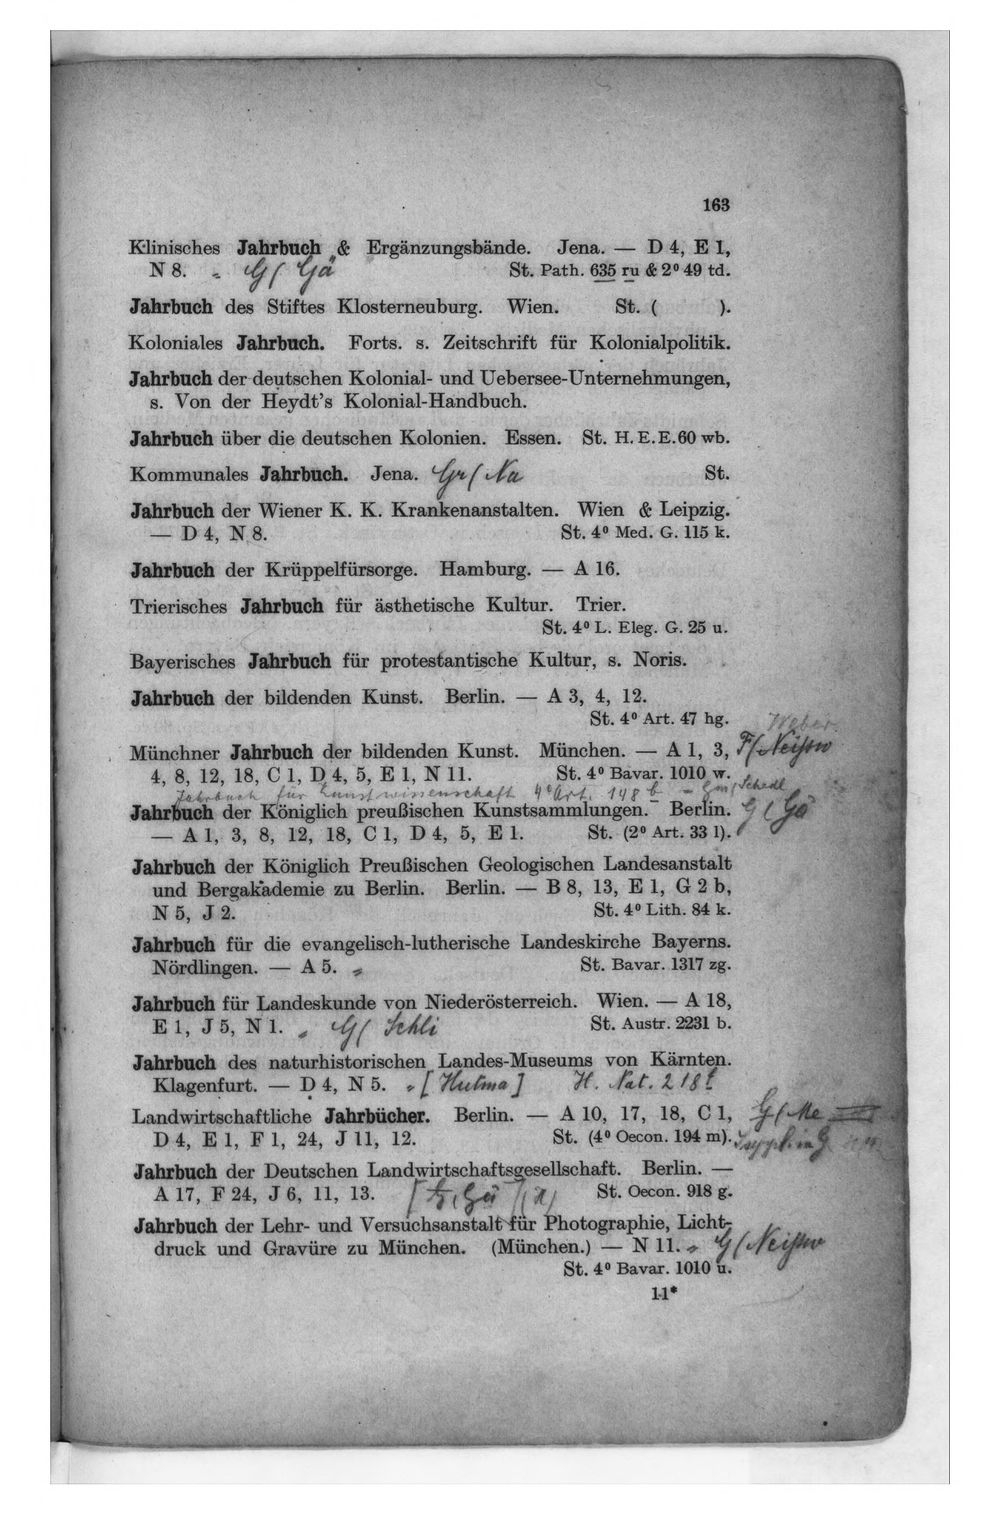 163
Klinisches Jahrbuch & Ergänzungsbände. Jena. — D 4, E 1,
N 8. G( Gä St. Path. 635 ru & 2⁰ 49 td.
Jahrbuch des Stiftes Klosterneuburg. Wien. St. ( ).
Koloniales Jahrbuch. Forts. s. Zeitschrift für Kolonialpolitik.
Jahrbuch der deutschen Kolonial- und Uebersee-Unternehmungen,
s. Von der Heydt's Kolonial-Handbuch.
Jahrbuch über die deutschen Kolonien. Essen. St. H. E. E. 60 wb.
Kommunales Jahrbuch. Jena. Gr( Na St.
Jahrbuch der Wiener K. K. Krankenanstalten. Wien & Leipzig.
— D 4, N 8. St. 4⁰ Med. G. 115 k.
Jahrbuch der Krüppelfürsorge. Hamburg. — A 16.
Trierisches Jahrbuch für ästhetische Kultur. Trier.
St. 4⁰ L. Eleg. G. 25 u.
Bayerisches Jahrbuch für protestantische Kultur, s. Noris.
Jahrbuch der bildenden Kunst. Berlin. — A 3, 4, 12.
St. 4⁰ Art. 47 hg. Weber
Münchner Jahrbuch der bildenden Kunst. München. — A 1, 3,
4, 8, 12, 18, C 1, D 4, 5, E 1, N 11. St. 4⁰ Bavar. 1010 w.
Jahrbuch für Kunstwissenschaft 4⁰ Art. 148 b
Jahrbuch der Königlich preußischen Kunstsammlungen. Berlin. G( Gä
— A 1, 3, 8, 12, 18, C 1, D 4, 5, E 1. St. (2⁰ Art. 33 l).
Jahrbuch der Königlich Preußischen Geologischen Landesanstalt
und Bergakademie zu Berlin. Berlin. — B 8, 13, E 1, G 2 b,
N 5, J 2. St. 4⁰ Lith. 84 k.
Jahrbuch für die evangelisch-lutherische Landeskirche Bayerns.
Nördlingen. — A 5. St. Bavar. 1317 zg.
Jahrbuch für Landeskunde von Niederösterreich. Wien. — A 18,
E 1, J 5, N 1. G( Schli St. Austr. 2231 b.
Jahrbuch des naturhistorischen Landes-Museums von Kärnten.
Klagenfurt. — D 4, N 5. H. Nat. 218 t
Landwirtschaftliche Jahrbücher. Berlin. — A 10, 17, 18, C 1, G( Me
D 4, E 1, F 1, 24, J 11, 12. St. (4⁰ Oecon. 194 m).
Jahrbuch der Deutschen Landwirtschaftsgesellschaft. Berlin. —
A 17, F 24, J 6, 11, 13. St. Oecon. 918 g.
Jahrbuch der Lehr- und Versuchsanstalt für Photographie, Licht-
druck und Gravüre zu München. (München.) — N 11.
St. 4⁰ Bavar. 1010 u.
11*